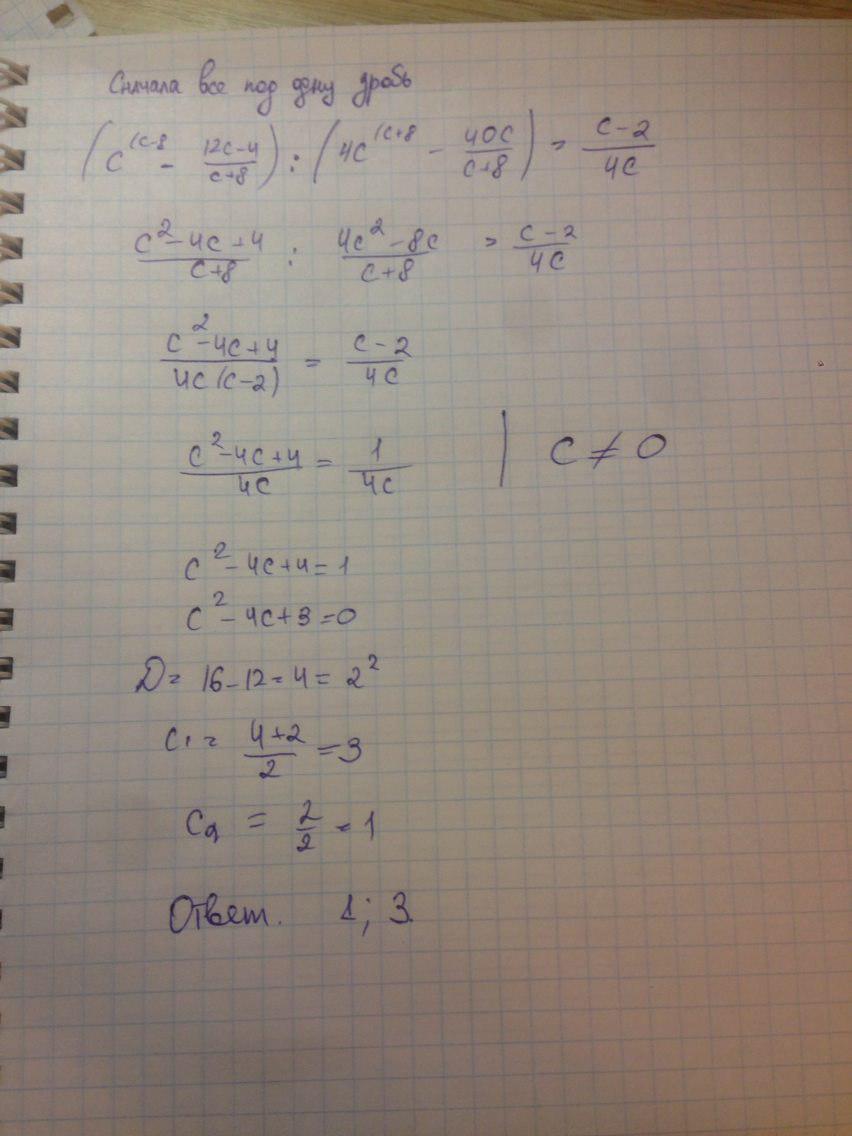 Сначала все под одну дробь
(c^(c-8 - (12c-4)/(c+8)) : (4c^(c+8 - 40c/(c+8)) = (c-2)/4c
(c²-4c+4)/(c+8) : (4c²-8c)/(c+8) = (c-2)/4c
(c²-4c+4)/(4c(c-2)) = (c-2)/4c
(c²-4c+4)/4c = 1/4c | c ≠ 0
c²-4c+4=1
c²-4c+3=0
D= 16-12=4=2²
c₁= (4+2)/2 =3
c₂ = 2/2 =1
Ответ. 1; 3.